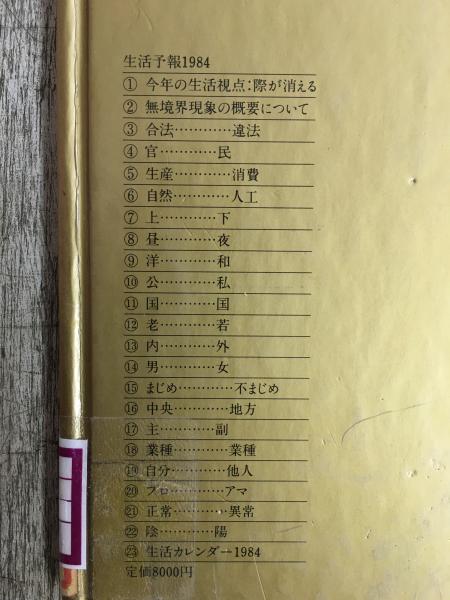 生活予報1984
① 今年の生活視点:際が消える
② 無境界現象の概要について
③ 合法…………違法
④ 官…………民
⑤ 生産…………消費
⑥ 自然…………人工
⑦ 上…………下
⑧ 昼…………夜
⑨ 洋…………和
⑩ 公…………私
⑪ 国…………国
⑫ 老…………若
⑬ 内…………外
⑭ 男…………女
⑮ まじめ…………不まじめ
⑯ 中央…………地方
⑰ 主…………副
⑱ 業種…………業種
⑲ 自分…………他人
⑳ プロ…………アマ
㉑ 正常…………異常
㉒ 陰…………陽
㉓ 生活カレンダー1984
定価8000円